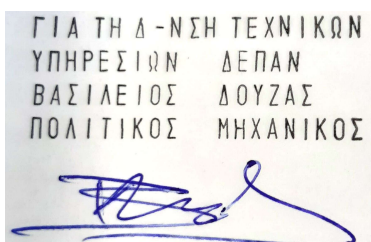 ΓΙΑ ΤΗ Δ-ΝΣΗ ΤΕΧΝΙΚΩΝ
ΥΠΗΡΕΣΙΩΝ ΔΕΠΑΝ
ΒΑΣΙΛΕΙΟΣ ΔΟΥΖΑΣ
ΠΟΛΙΤΙΚΟΣ ΜΗΧΑΝΙΚΟΣ